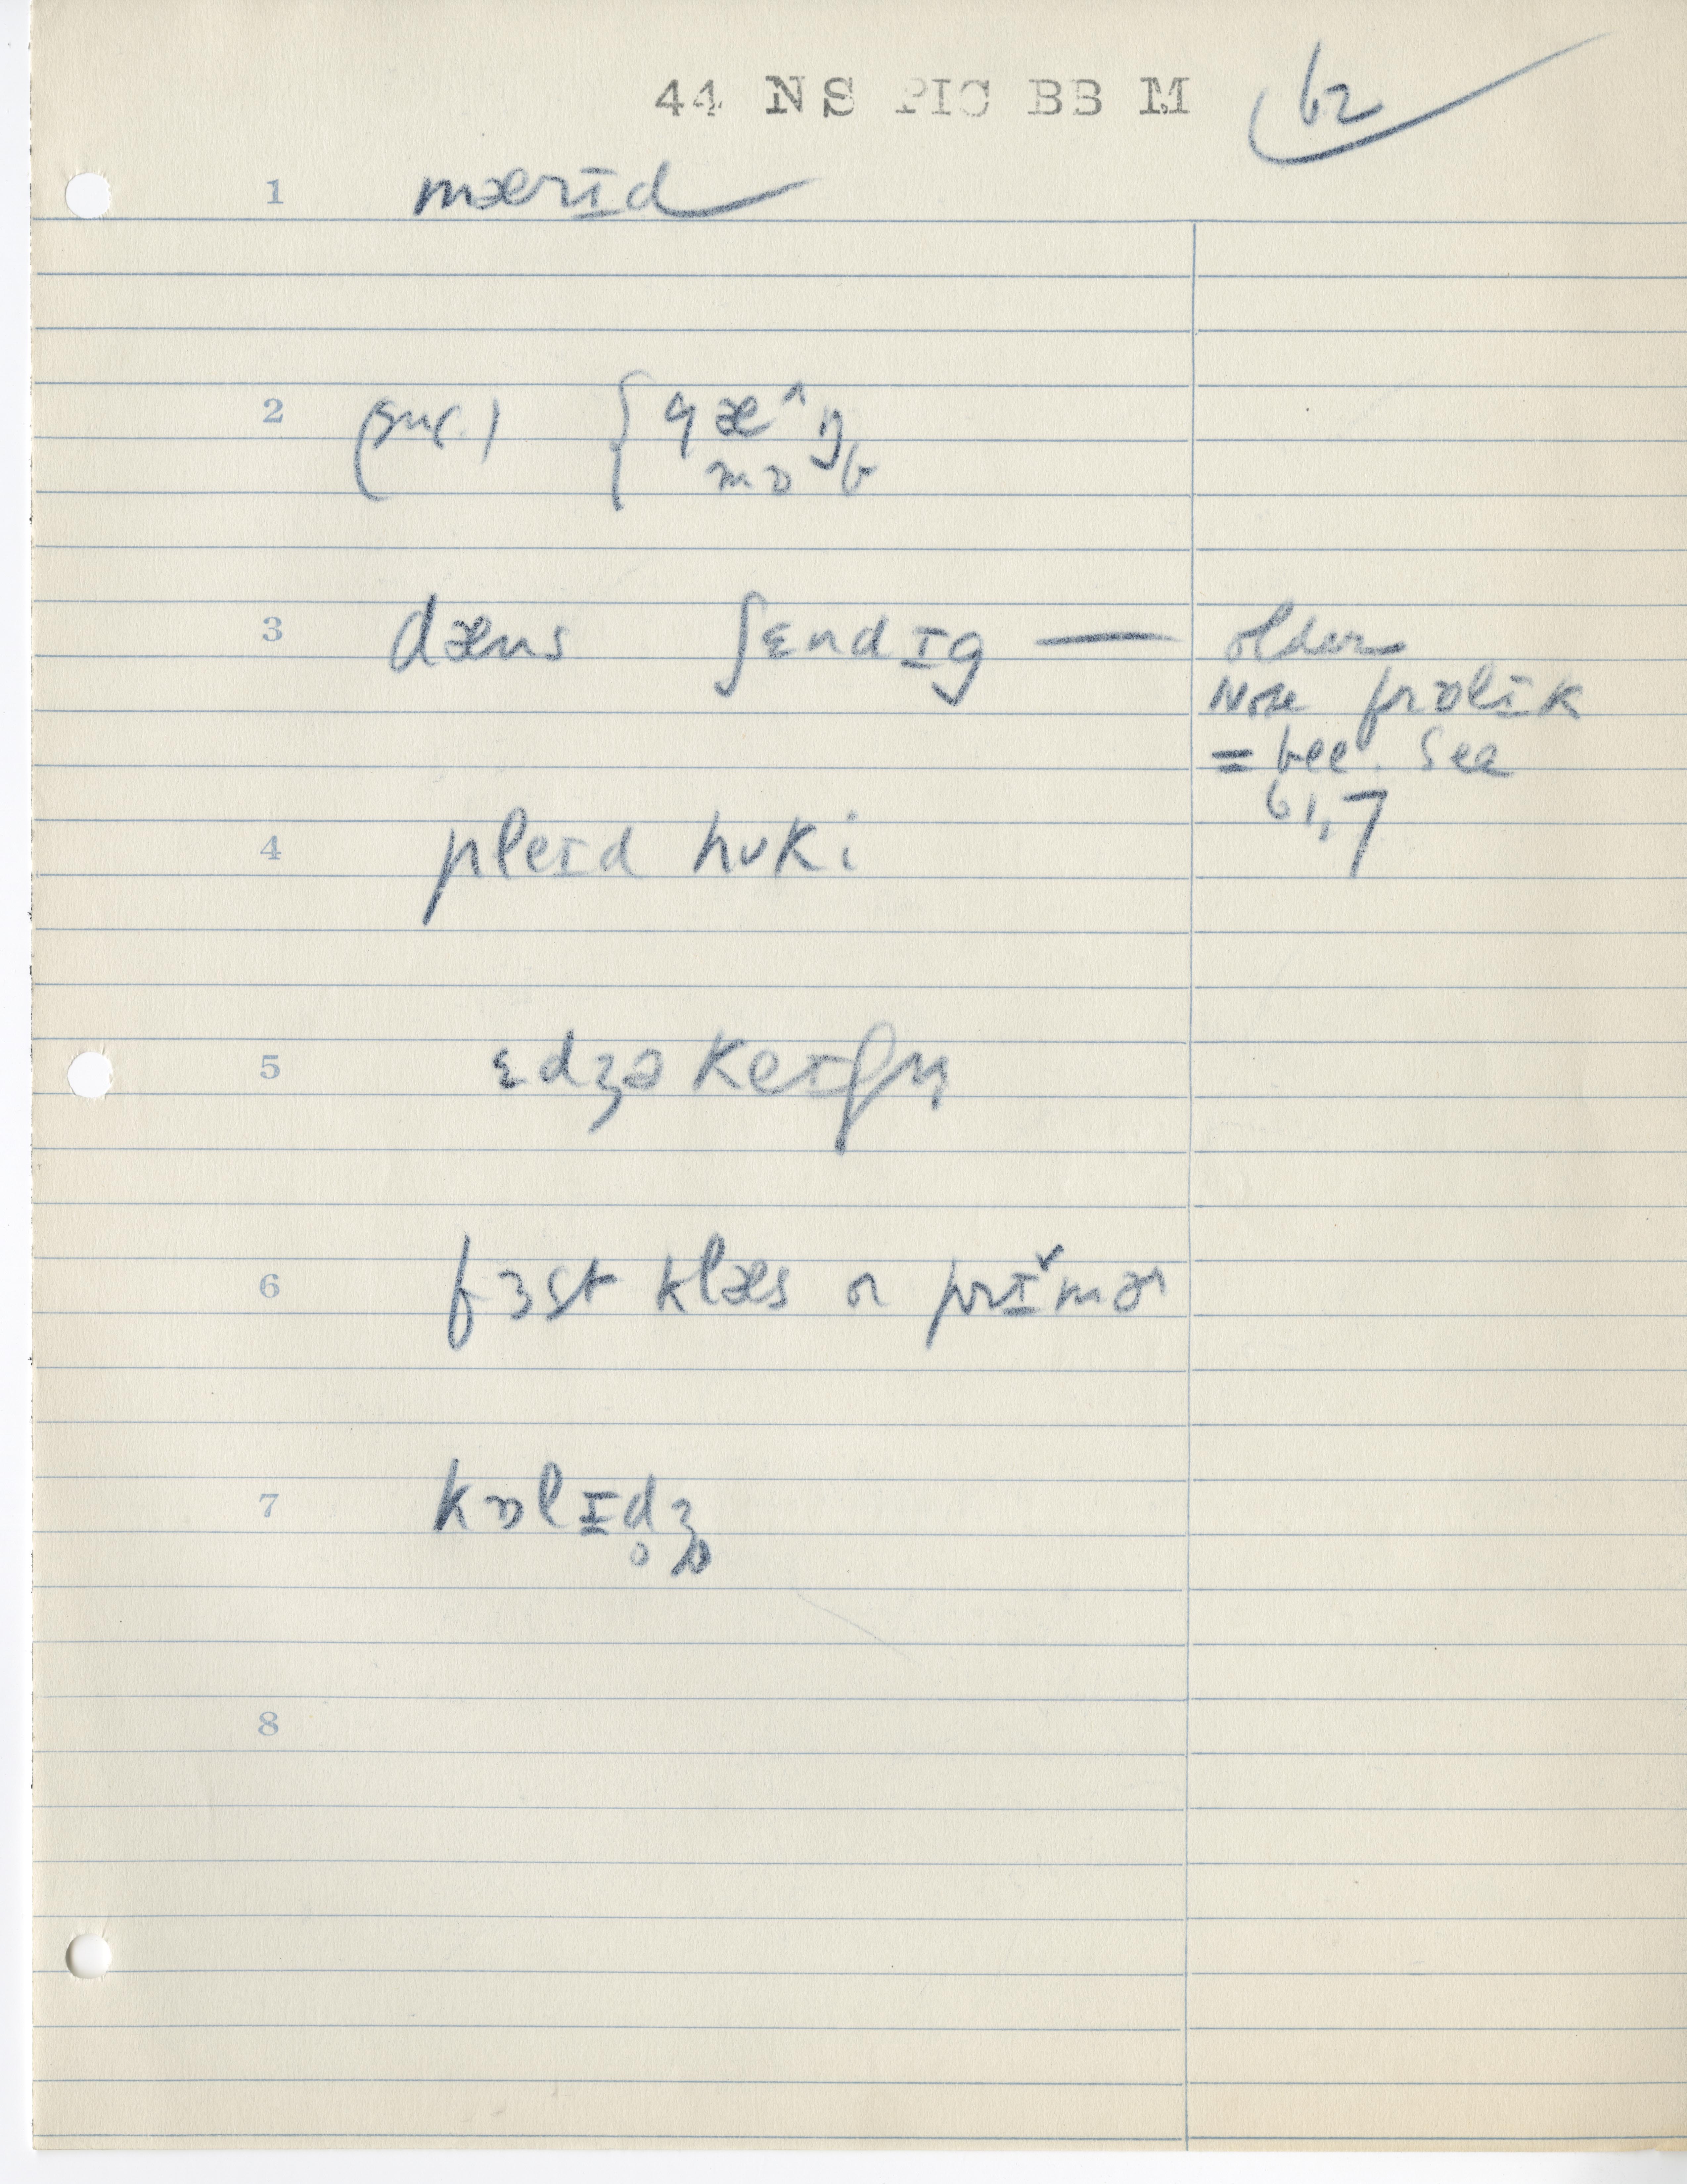 44 NS PIC BB M 62
1 mærɪd
2
3 dæns ʃɛndɪg — older
Note frɒlɪk
= bee. See
61,7
4 pleɪd hʊki
5 ɛdʒəkeɪʃn̩
6 fɜst klæs or prɪ̌mɚ
7 kɒlɪd̥ʒ̥
8